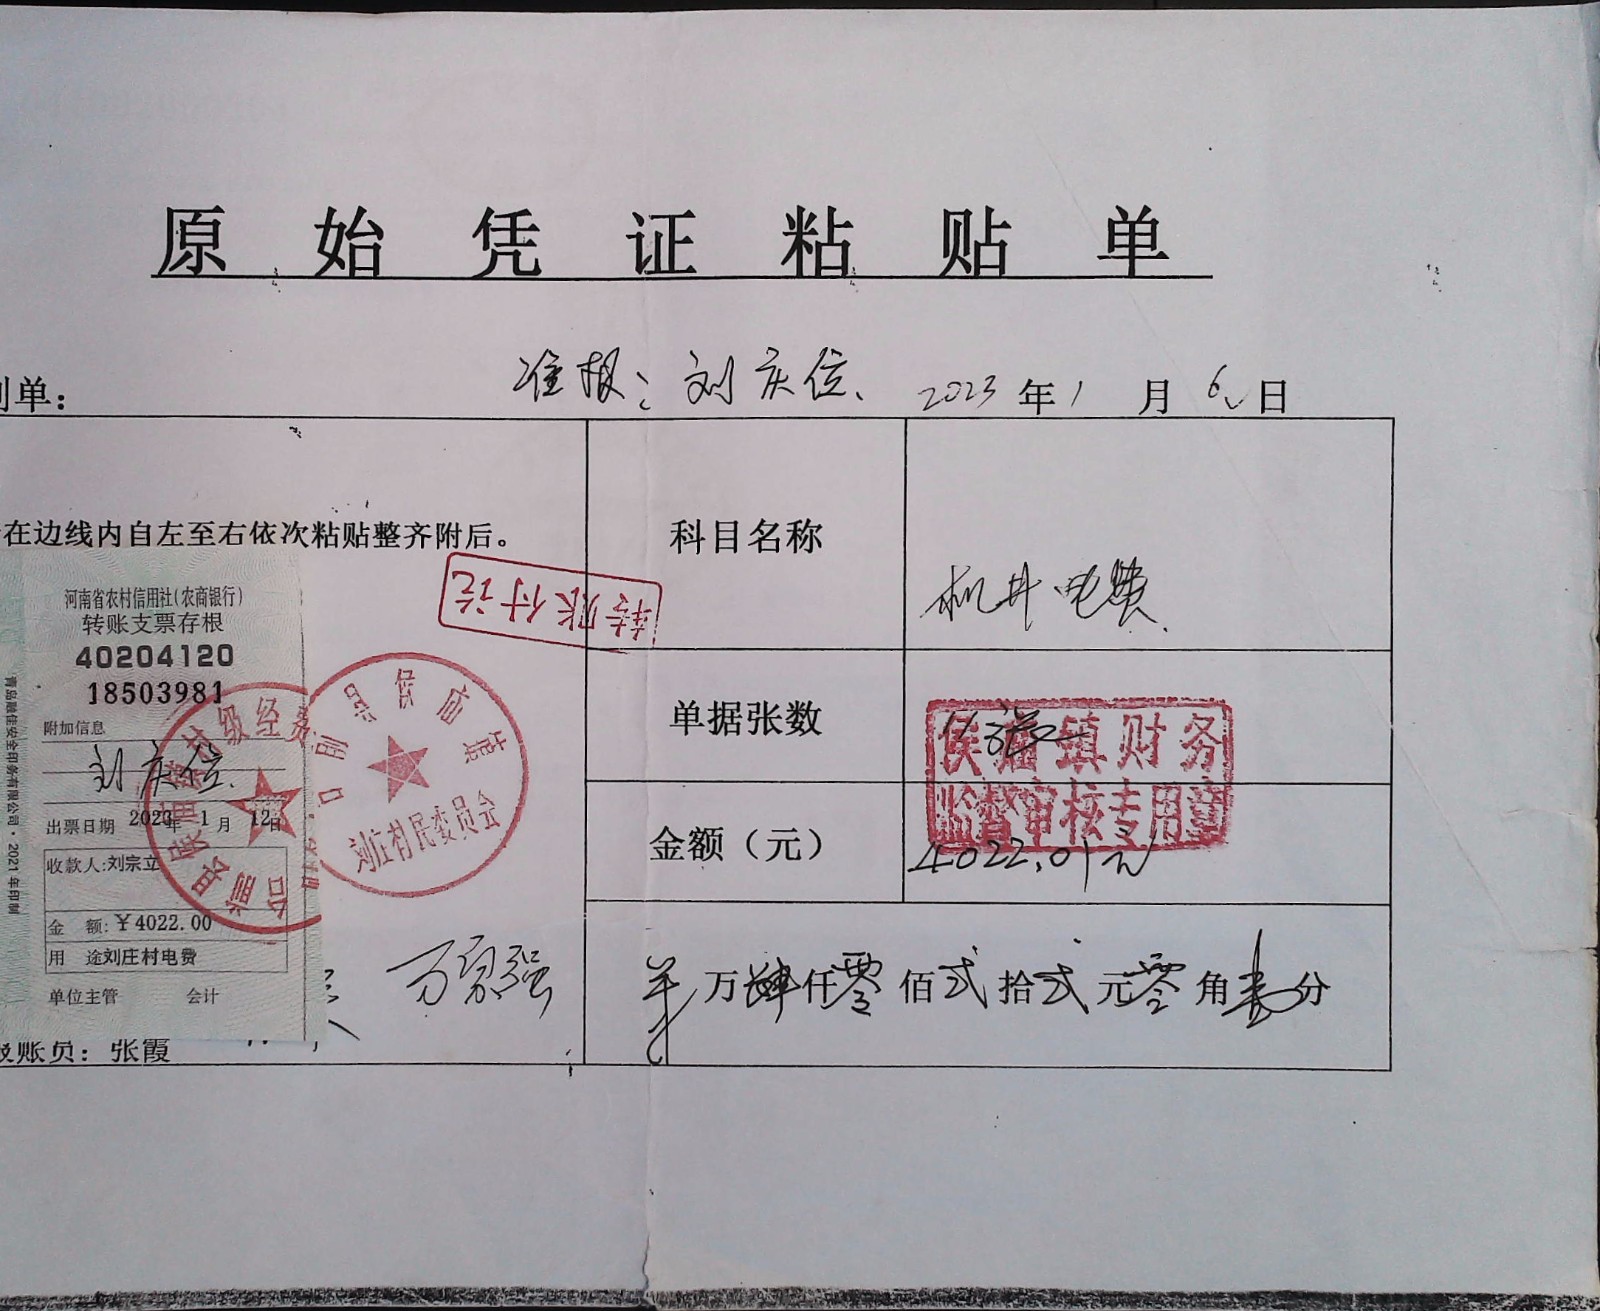 原始凭证粘贴单
准报：刘庆位、 2023年1月6日
单：
在边线内自左至右依次粘贴整齐附后。
科目名称
机井电费
转账付讫
河南省农村信用社(农商银行)
转账支票存根
40204120
18503981
附加信息
刘庆位
出票日期 2023年 1月 12日
收款人:刘宗立
金 额:￥4022.00
用 途刘庄村电费
单位主管 会计
青岛融佳安全印务有限公司·2021年印制
刘庄村民委员会
单据张数
侯庙镇财务
监督审核专用章
金额（元）
4022.01元
万肆仟零佰贰拾贰元零角壹分
账员：张霞